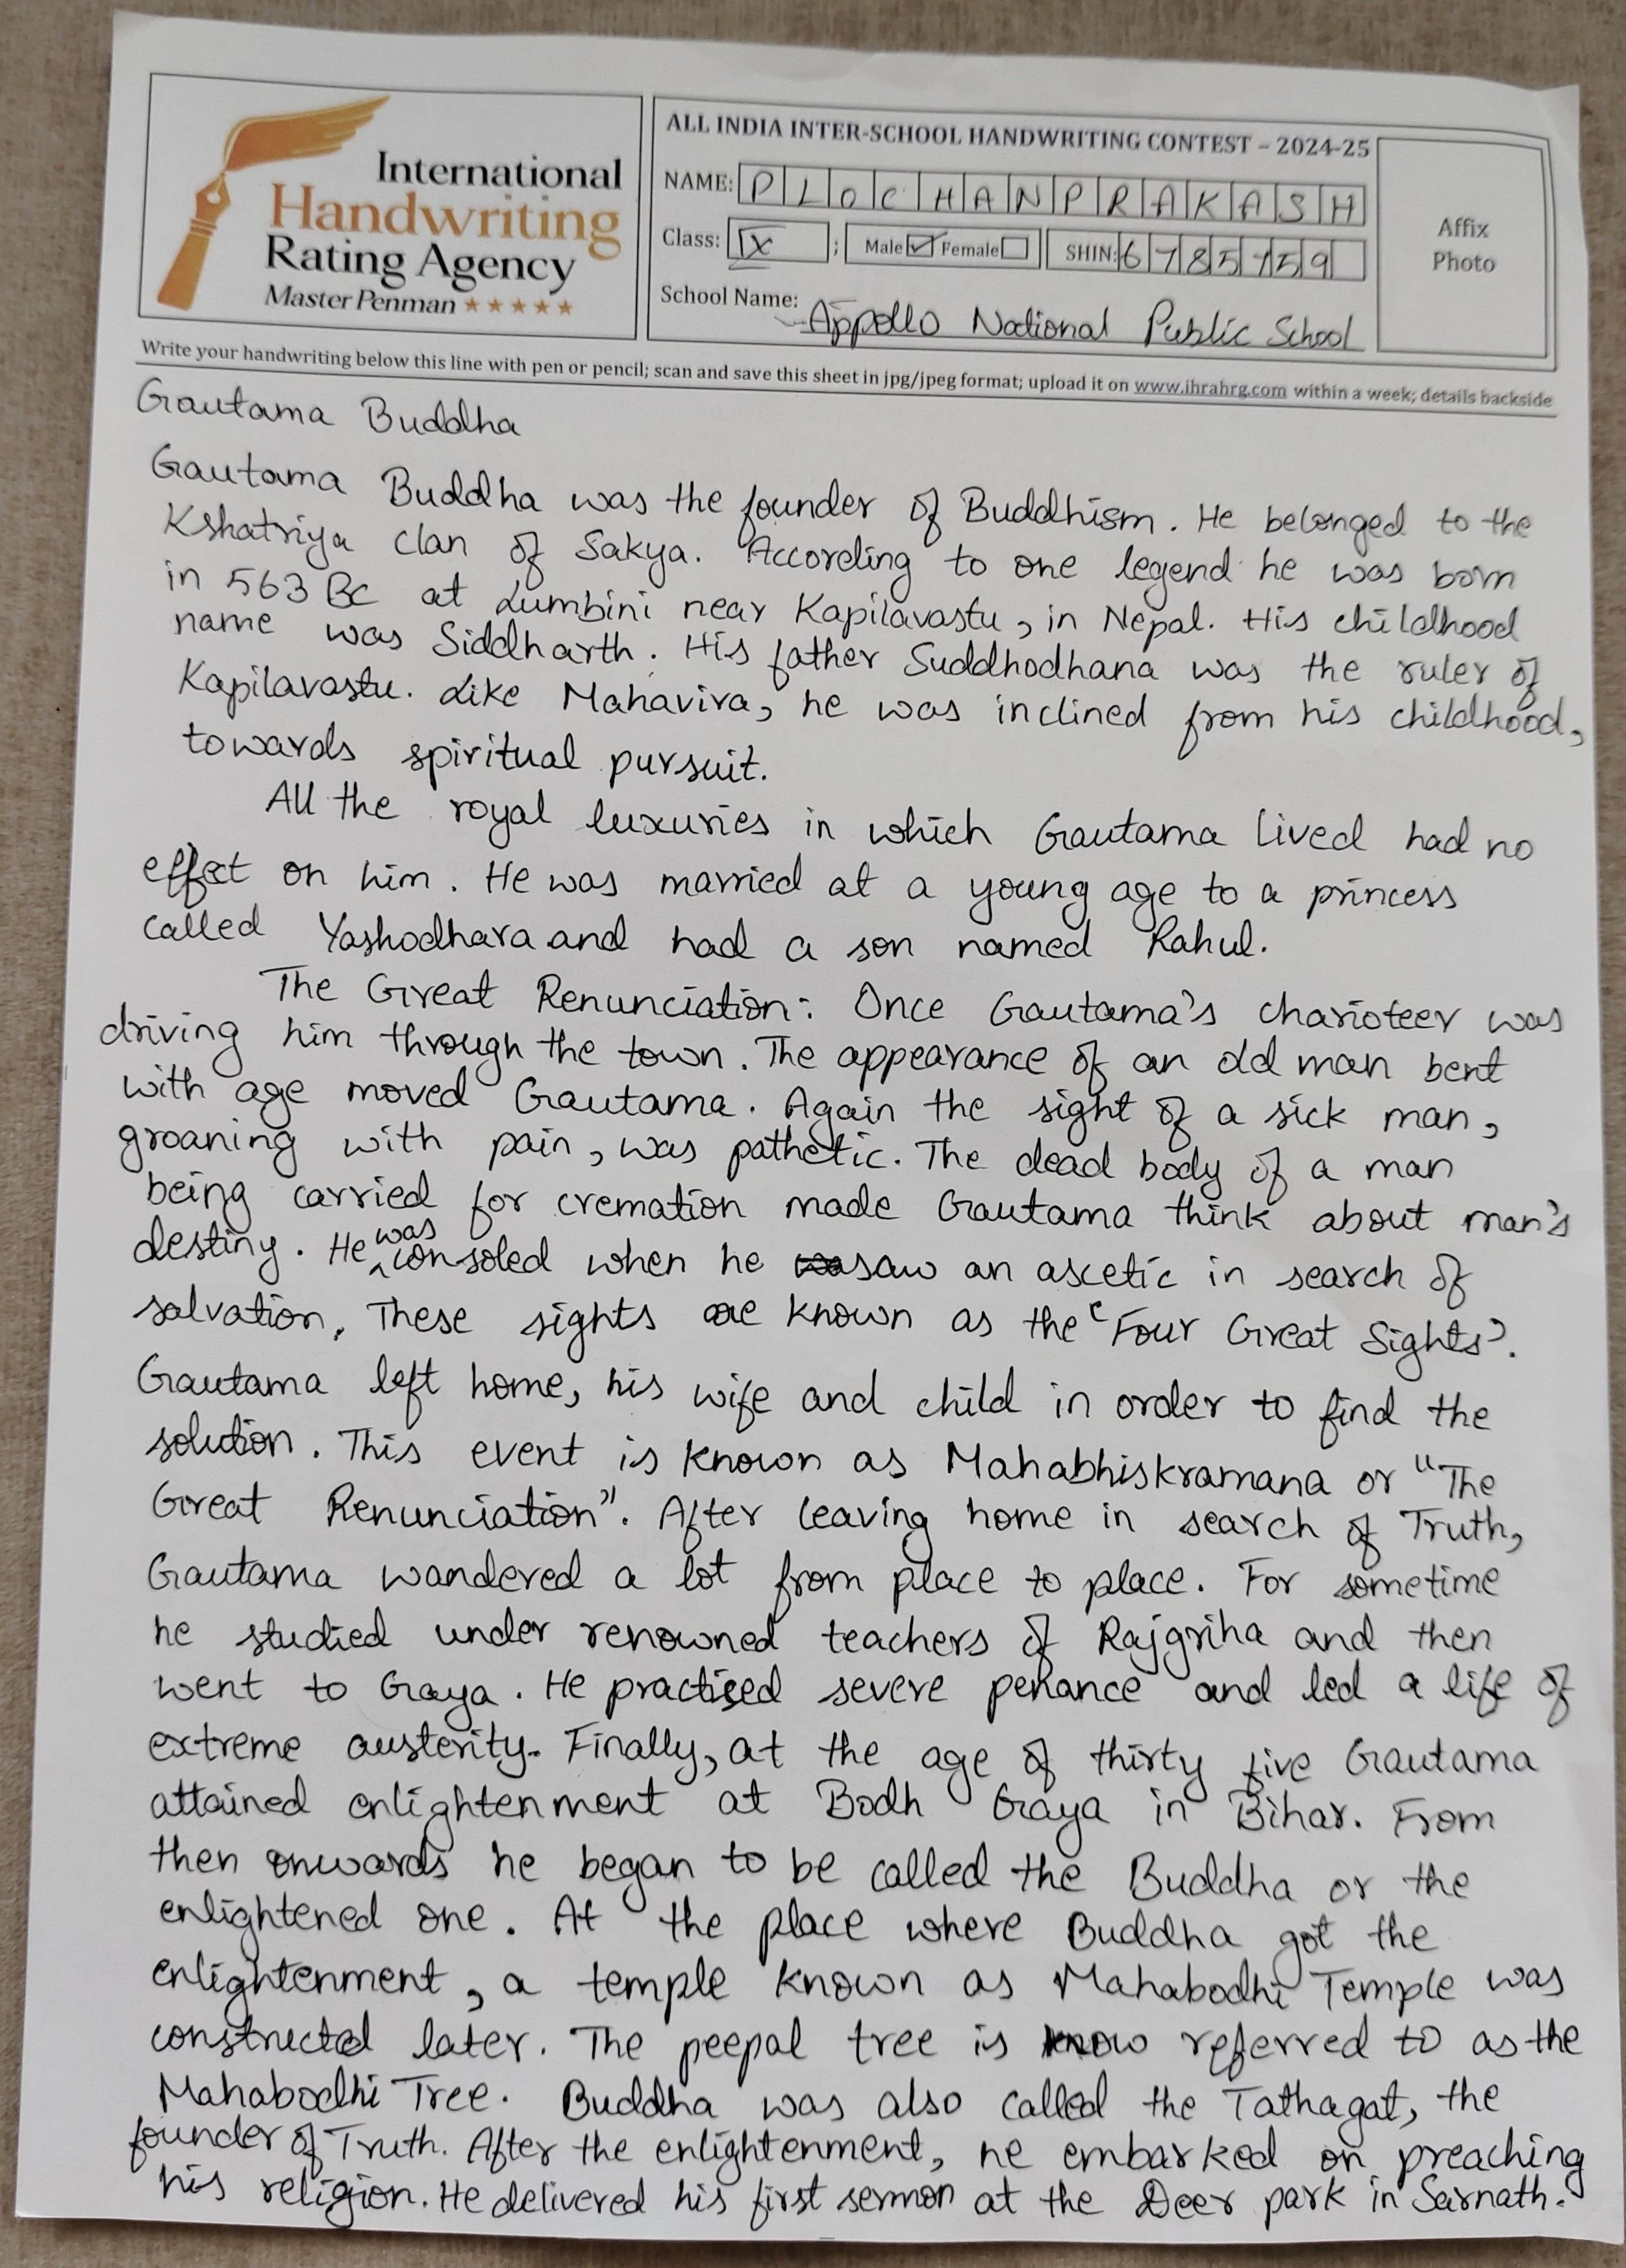 International
Handwriting
Rating Agency
Master Penman
ALL INDIA INTER-SCHOOL HANDWRITING CONTEST – 2024-25
NAME: P L O C H A N P R A K A S H
Class: IX ; Male ✓ Female SHIN: 6785759
School Name: Appollo National Public School
Affix
Photo
Write your handwriting below this line with pen or pencil; scan and save this sheet in jpg/jpeg format; upload it on www.ihrahrg.com within a week; details backside
Gautama Buddha
Gautama Buddha was the founder of Buddhism. He belonged to the
Kshatriya clan of Sakya. According to one legend he was born
in 563 BC at Lumbini near Kapilavastu, in Nepal. His childhood
name was Siddharth. His father Suddhodhana was the ruler of
Kapilavastu. Like Mahavira, he was inclined from his childhood,
towards spiritual pursuit.
All the royal luxuries in which Gautama lived had no
effect on him. He was married at a young age to a princess
called Yashodhara and had a son named Rahul.
The Great Renunciation: Once Gautama's charioteer was
driving him through the town. The appearance of an old man bent
with age moved Gautama. Again the sight of a sick man,
groaning with pain, was pathetic. The dead body of a man
being carried for cremation made Gautama think about man's
destiny. He was consoled when he saw an ascetic in search of
salvation. These sights are known as the 'Four Great Sights'.
Gautama left home, his wife and child in order to find the
solution. This event is known as Mahabhiskramana or "The
Great Renunciation". After leaving home in search of Truth,
Gautama wandered a lot from place to place. For sometime
he studied under renowned teachers of Rajgriha and then
went to Gaya. He practised severe penance and led a life of
extreme austerity. Finally, at the age of thirty five Gautama
attained enlightenment at Bodh Gaya in Bihar. From
then onwards he began to be called the Buddha or the
enlightened one. At the place where Buddha got the
enlightenment, a temple known as Mahabodhi Temple was
constructed later. The peepal tree is know referred to as the
Mahabodhi Tree. Buddha was also called the Tathagat, the
founder of Truth. After the enlightenment, he embarked on preaching
his religion. He delivered his first sermon at the Deer park in Sarnath.